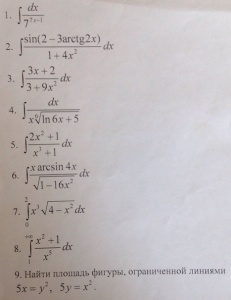 1. ∫ dx / 7^(7x-1)
2. ∫ sin(2 − 3arctg2x) / (1 + 4x²) dx
3. ∫ (3x + 2) / (3 + 9x²) dx
4. ∫ dx / (x ⁶√(ln 6x + 5))
5. ∫ (2x² + 1) / (x³ + 1) dx
6. ∫ x arcsin 4x / √(1 − 16x²) dx
7. ∫₀² x³ √(4 − x²) dx
8. ∫ ^(+∞) (x² + 1) / x⁵ dx
9. Найти площадь фигуры, ограниченной линиями
5x = y², 5y = x².